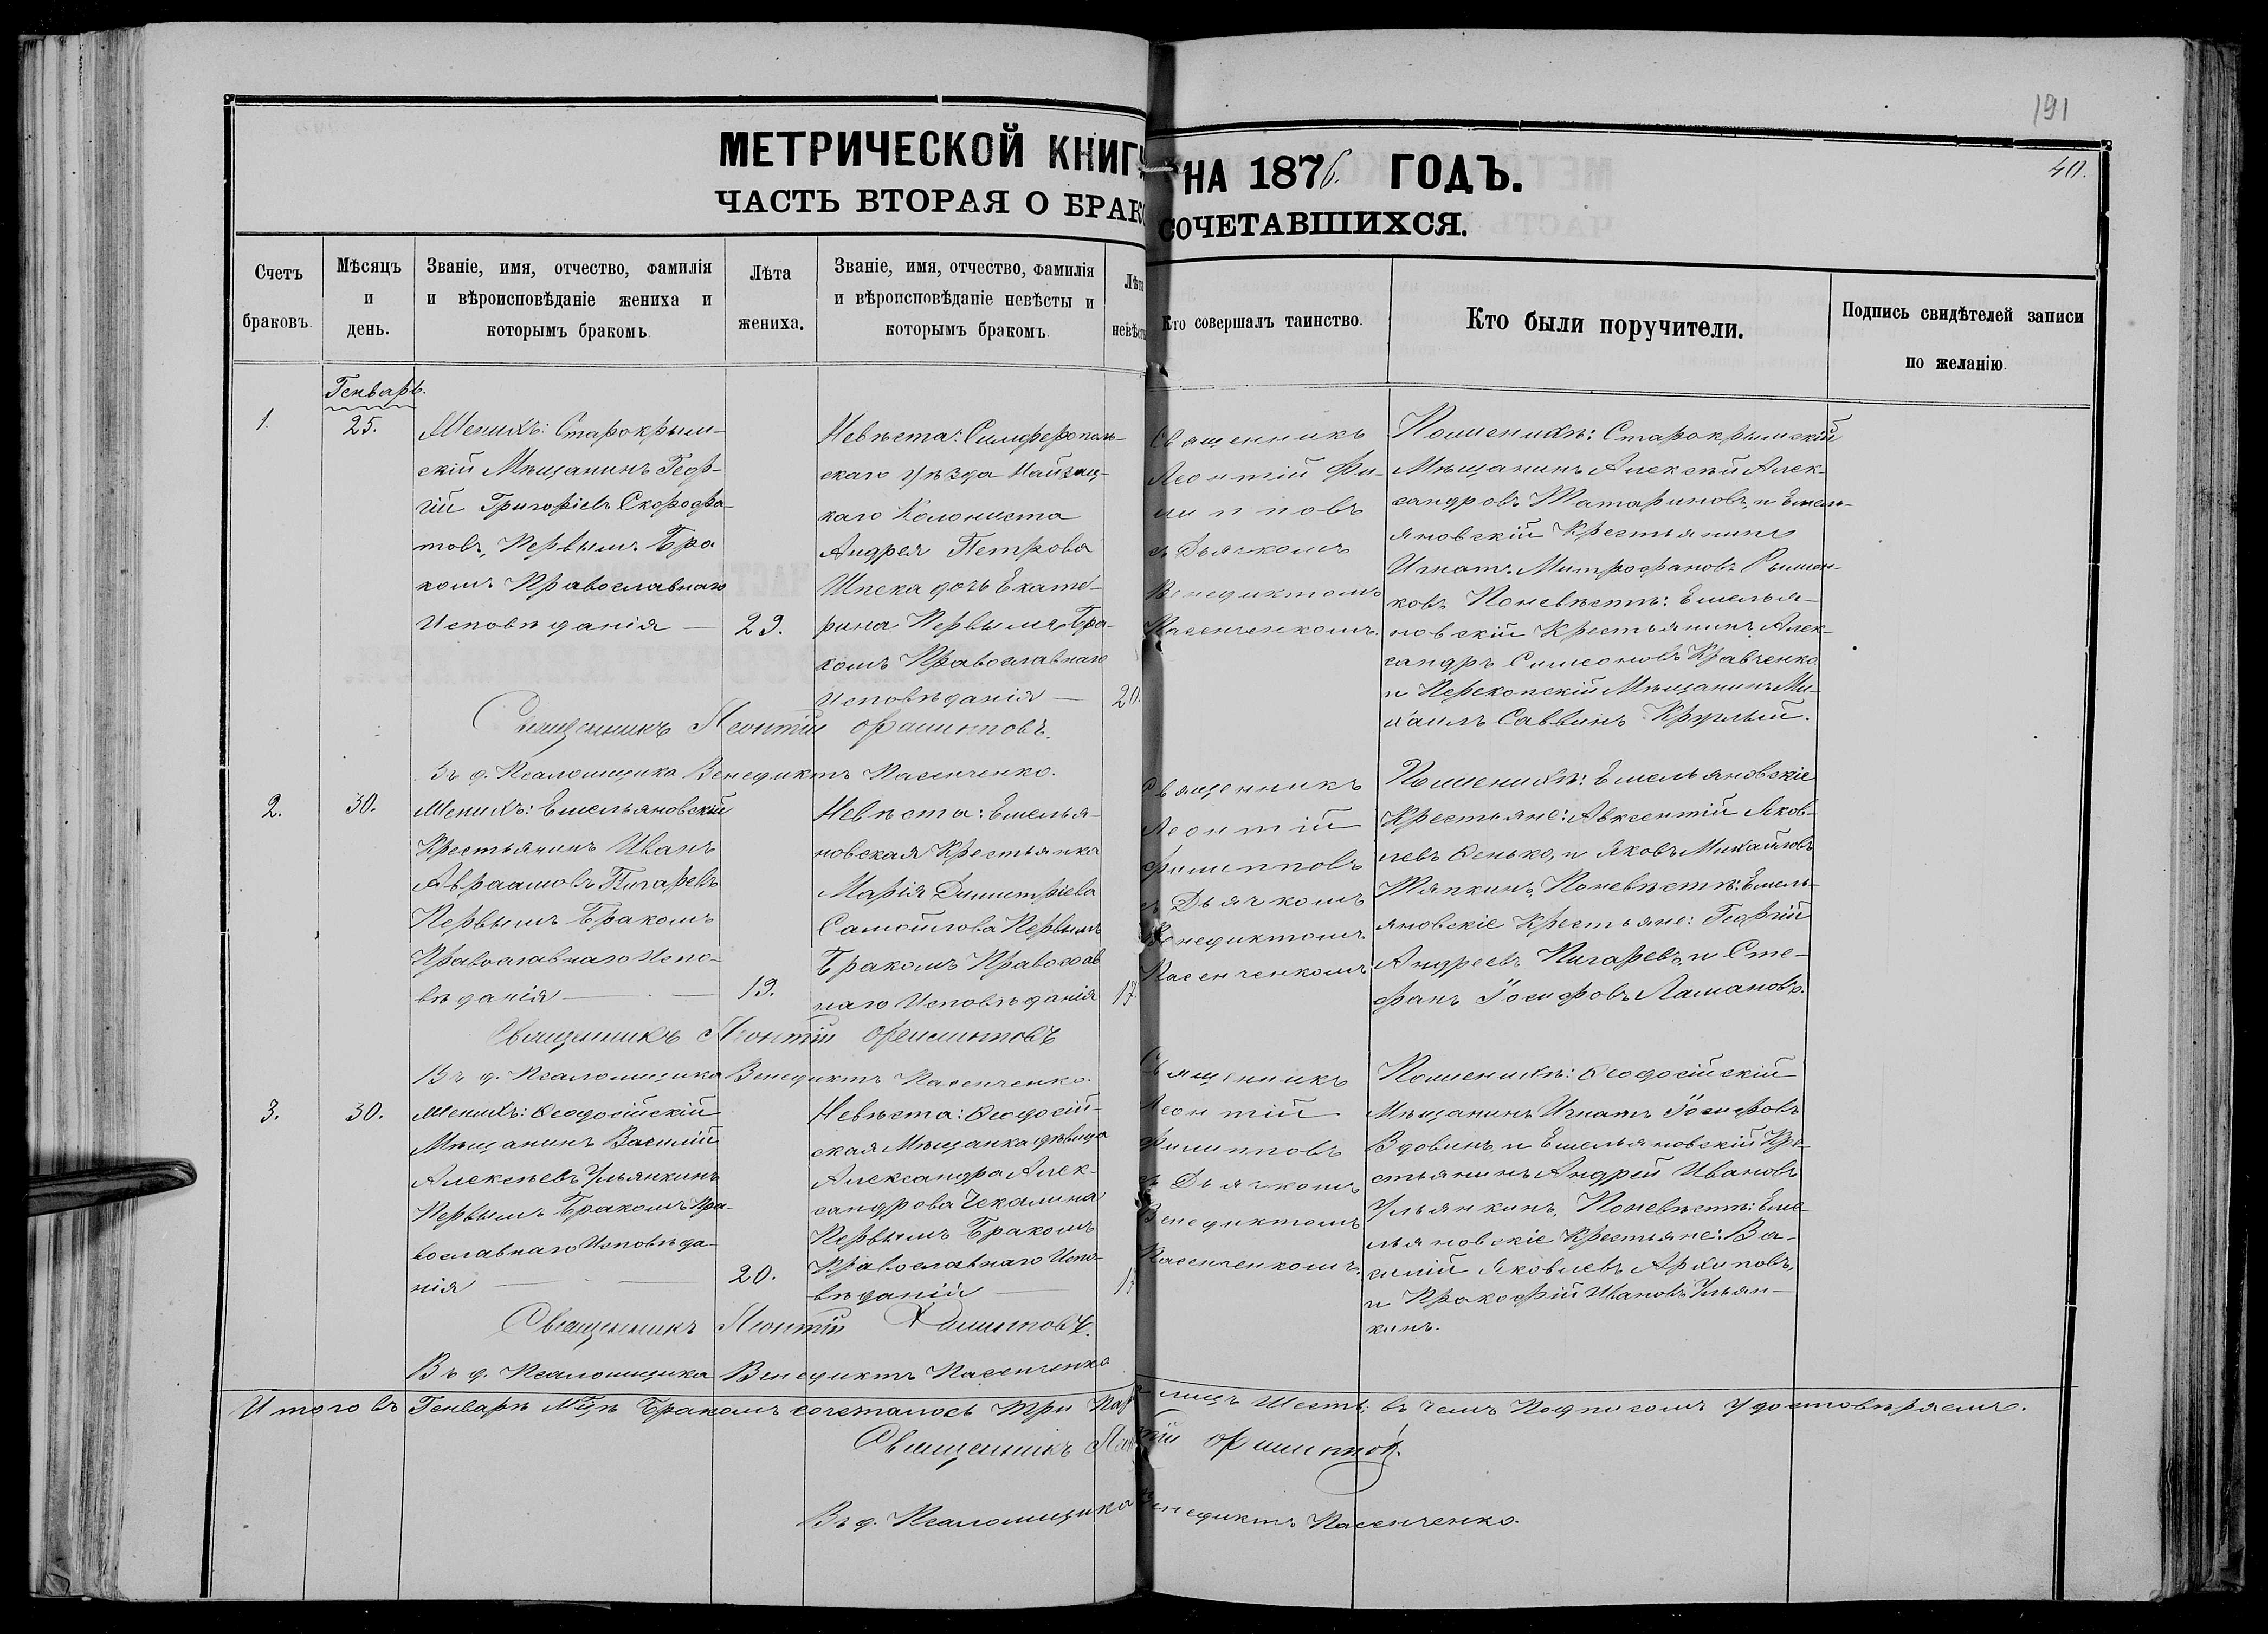 191
40.
МЕТРИЧЕСКОЙ КНИГИ НА 1876. ГОДЪ.
ЧАСТЬ ВТОРАЯ О БРАКОСОЧЕТАВШИХСЯ.
Счетъ
браковъ.
Мѣсяцъ
и
день.
Званіе, имя, отчество, фамилія
и вѣроисповѣданіе жениха и
которымъ бракомъ.
Лѣта
жениха.
Званіе, имя, отчество, фамилія
и вѣроисповѣданіе невѣсты и
которымъ бракомъ.
Лѣта
невѣсты
Кто совершалъ таинство.
Кто были поручители.
Подпись свидѣтелей записи
по желанію.
Генварь.
1.
25.
Женихъ: Старокрым-
скій Мѣщанинъ Геор-
гій Григоріевъ Скорофа-
товъ, Первымъ Бра
комъ Православнаго
Исповѣданія —
29.
Невѣста: Симферополь-
скаго уѣзда Найзац-
каго Колониста
Андрея Петрова
Шпека дочь Екате-
рина Первымъ Бра-
комъ Православнаго
Исповѣданія —
20.
Священникъ
Леонтій Фи-
липповъ
съ Дьячкомъ
Венедиктомъ
Пасенченкомъ.
Поженихѣ: Старокрымскій
Мѣщанинъ Алексѣй Алек-
сандровъ Татариновъ, и Емель-
яновскій Крестьянинъ
Игнатъ Митрофановъ
ковъ Поневѣстѣ: Емелья-
новскій Крестьянинъ Алек-
сандръ Симеоновъ Кравченко
и Перекопскій Мѣщанинъ Ми-
хаилъ Саввинъ Круглый.
Священникъ Леонтій Филипповъ.
Въ д. Псаломщика Венедиктъ Пасенченко.
2.
30.
Женихъ: Емельяновскій
Крестьянинъ Иванъ
Авраамовъ Пигаревъ
Первымъ Бракомъ
Православнаго Испо-
вѣданія —
19.
Невѣста: Емелья-
новская Крестьянка
Марія Димитріева
Самойлова Первымъ
Бракомъ Православ
наго Исповѣданія
17.
Священникъ
Леонтій
Филипповъ
съ Дьячкомъ
Венедиктомъ
Пасенченкомъ
Поженихѣ: Емельяновскіе
Крестьяне: Авксентій Яков-
левъ Сенько, и Яковъ Михайловъ
Тяпкинъ, Поневѣстѣ: Емель-
яновскіе Крестьяне: Георгій
Андреевъ Пигаревъ, и Сте-
фанъ Іосифовъ Лашановъ.
Священникъ Леонтій Филипповъ
Въ д. Псаломщика Венедиктъ Пасенченко.
3.
30.
Женихъ: Ѳеодосійскій
Мѣщанинъ Василій
Алексѣевъ Ульянкинъ
Первымъ Бракомъ Пра-
вославнаго Исповѣда-
нія —
20.
Невѣста: Ѳеодосій-
ская Мѣщанка дѣвица
Александра Алек-
сандрова Чекалина
Первымъ Бракомъ
Православнаго Испо-
вѣданій —
Священникъ
Леонтій
Филипповъ
съ Дьячкомъ
Венедиктомъ
Пасенченкомъ.
Поженихѣ: Ѳеодосійскій
Мѣщанинъ Игнатъ Іосифовъ
Вдовинъ, и Емельяновскій Кре-
стьянинъ Андрей Ивановъ
Ульянкинъ, Поневѣстѣ: Еме-
льяновскіе Крестьяне: Ва-
силій Яковлевъ Архиповъ,
и Прокофій Ивановъ Ульян-
кинъ.
Священникъ Леонтій Филипповъ.
Въ д. Псаломщика Венедиктъ Пасенченко
Итого въ Генварѣ Мцѣ Бракомъ сочеталось три Пар лицъ Шесть, въ чемъ Подписомъ удостовѣряемъ.
Священникъ Леонтій Филипповъ.
Въ д. Псаломщика Венедиктъ Пасенченко.